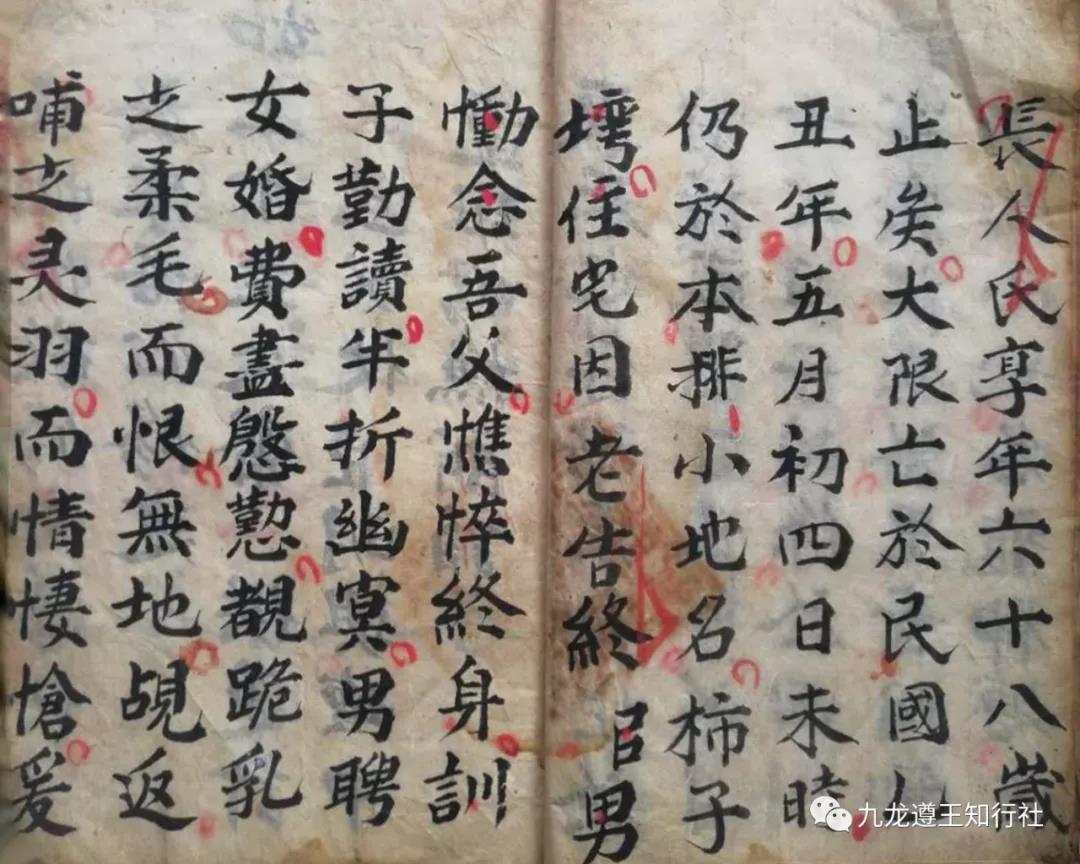 長人氏享年六十八歲
止矣大限亡於民國
丑年五月初四日未時
仍於本排小地名柿子
住宅因老告終㠯男
慟念吾父憔悴終身訓
子勤讀半折幽冥男聘
女婚費盡慇懃覩跪乳
之柔毛而恨無地覘返
哺之灵羽而情悽愴爰
九龙遵王知行社